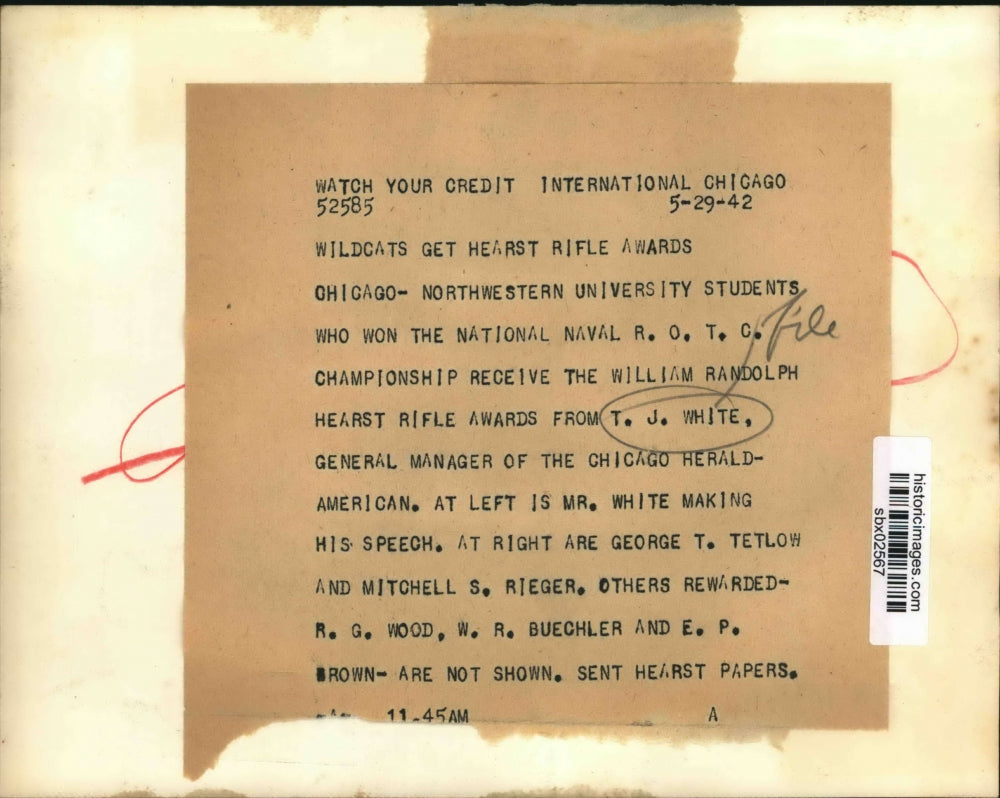 WATCH YOUR CREDIT INTERNATIONAL CHICAGO
52585 5-29-42
WILDCATS GET HEARST RIFLE AWARDS
CHICAGO- NORTHWESTERN UNIVERSITY STUDENTS
WHO WON THE NATIONAL NAVAL R. O. T. C.
file
CHAMPIONSHIP RECEIVE THE WILLIAM RANDOLPH
HEARST RIFLE AWARDS FROM T. J. WHITE,
GENERAL MANAGER OF THE CHICAGO HERALD-
AMERICAN. AT LEFT IS MR. WHITE MAKING
HIS SPEECH. AT RIGHT ARE GEORGE T. TETLOW
AND MITCHELL S. RIEGER. OTHERS REWARDED-
R. G. WOOD, W. R. BUECHLER AND E. P.
BROWN- ARE NOT SHOWN. SENT HEARST PAPERS.
11-45AM A
historicimages.com
sbx02567